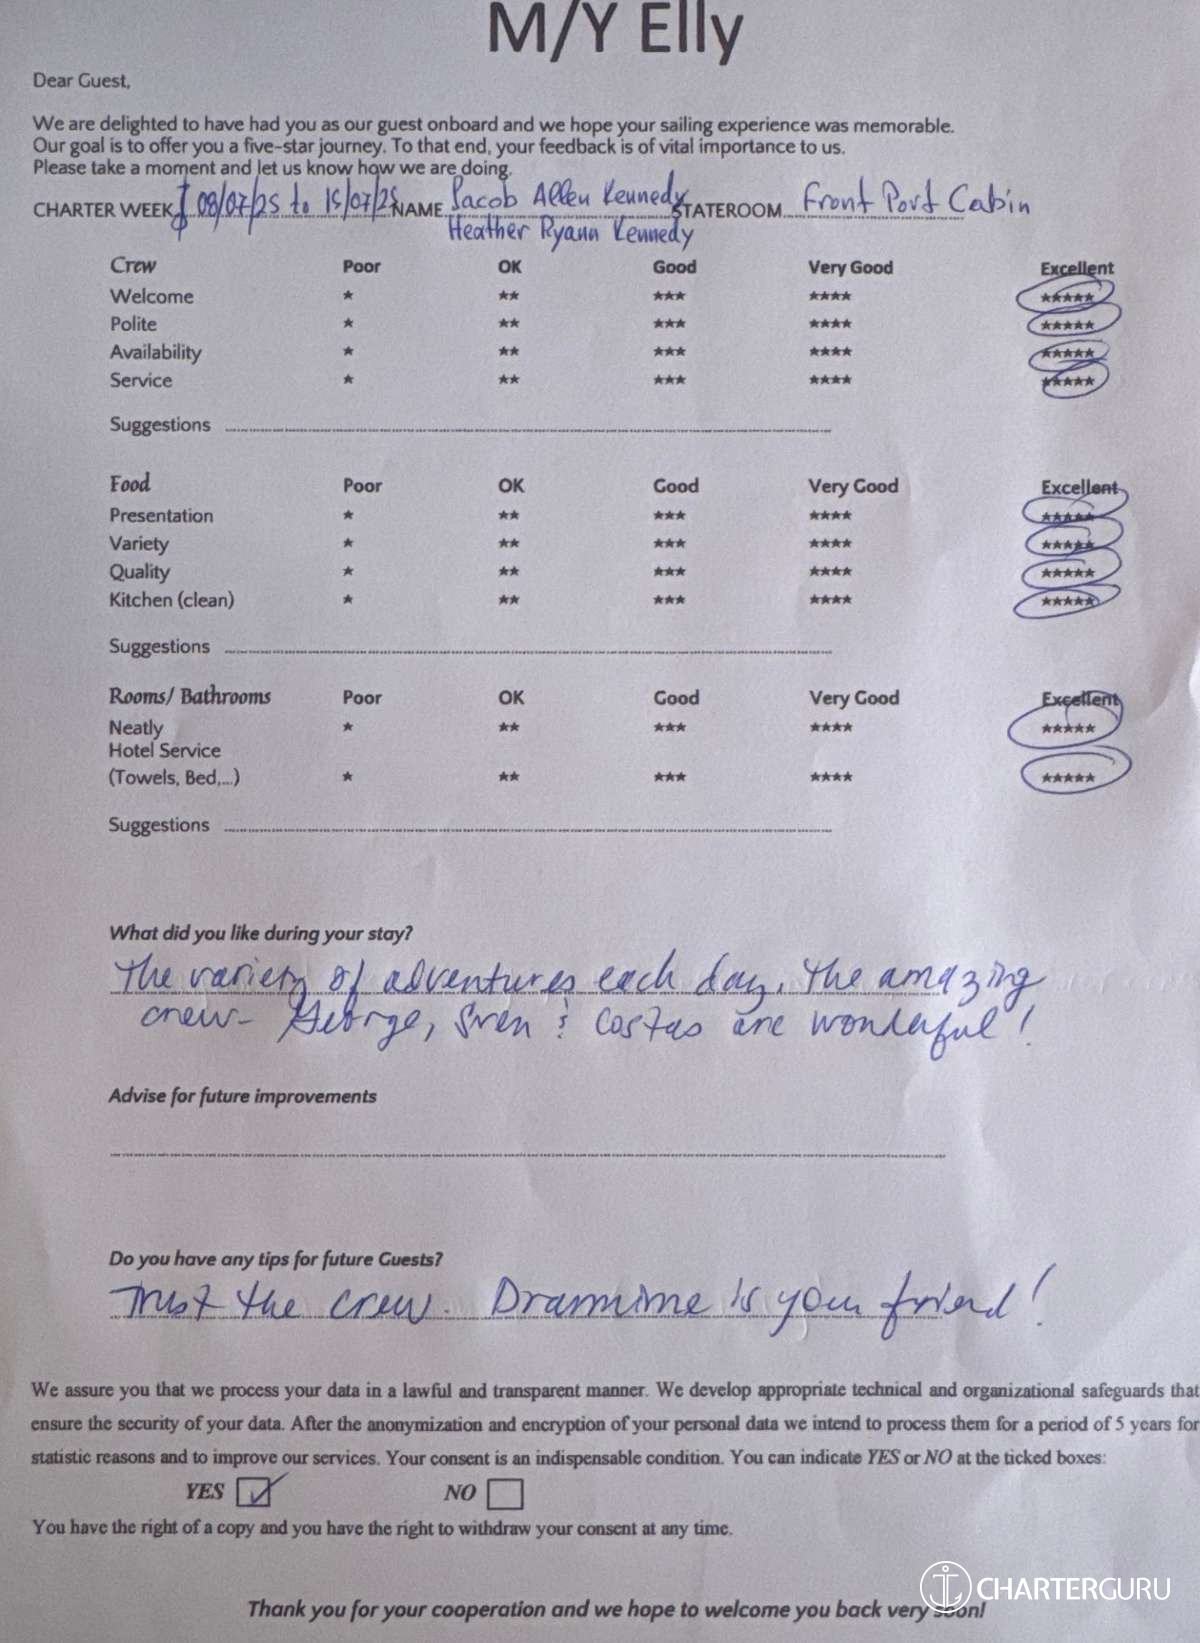 M/Y Elly
Dear Guest,
We are delighted to have had you as our guest onboard and we hope your sailing experience was memorable.
Our goal is to offer you a five-star journey. To that end, your feedback is of vital importance to us.
Please take a moment and let us know how we are doing.
CHARTER WEEK 08/07/25 to 15/07/25 NAME Jacob Allen Kennedy STATEROOM Front Port Cabin
Heather Ryann Kennedy
Crew Poor OK Good Very Good Excellent
Welcome ★ ★★ ★★★ ★★★★ ★★★★★
Polite ★ ★★ ★★★ ★★★★ ★★★★★
Availability ★ ★★ ★★★ ★★★★ ★★★★★
Service ★ ★★ ★★★ ★★★★ ★★★★★
Suggestions
Food Poor OK Good Very Good Excellent
Presentation ★ ★★ ★★★ ★★★★ ★★★★★
Variety ★ ★★ ★★★ ★★★★ ★★★★★
Quality ★ ★★ ★★★ ★★★★ ★★★★★
Kitchen (clean) ★ ★★ ★★★ ★★★★ ★★★★★
Suggestions
Rooms/ Bathrooms Poor OK Good Very Good Excellent
Neatly ★ ★★ ★★★ ★★★★ ★★★★★
Hotel Service
(Towels, Bed,...) ★ ★★ ★★★ ★★★★ ★★★★★
Suggestions
What did you like during your stay?
The variety of adventures each day. The amazing
crew- George, Sven & Costas are wonderful!
Advise for future improvements
Do you have any tips for future Guests?
Trust the crew. Dramime is your friend!
We assure you that we process your data in a lawful and transparent manner. We develop appropriate technical and organizational safeguards that
ensure the security of your data. After the anonymization and encryption of your personal data we intend to process them for a period of 5 years for
statistic reasons and to improve our services. Your consent is an indispensable condition. You can indicate YES or NO at the ticked boxes:
YES ☑ NO ☐
You have the right of a copy and you have the right to withdraw your consent at any time.
CHARTERGURU
Thank you for your cooperation and we hope to welcome you back very soon!